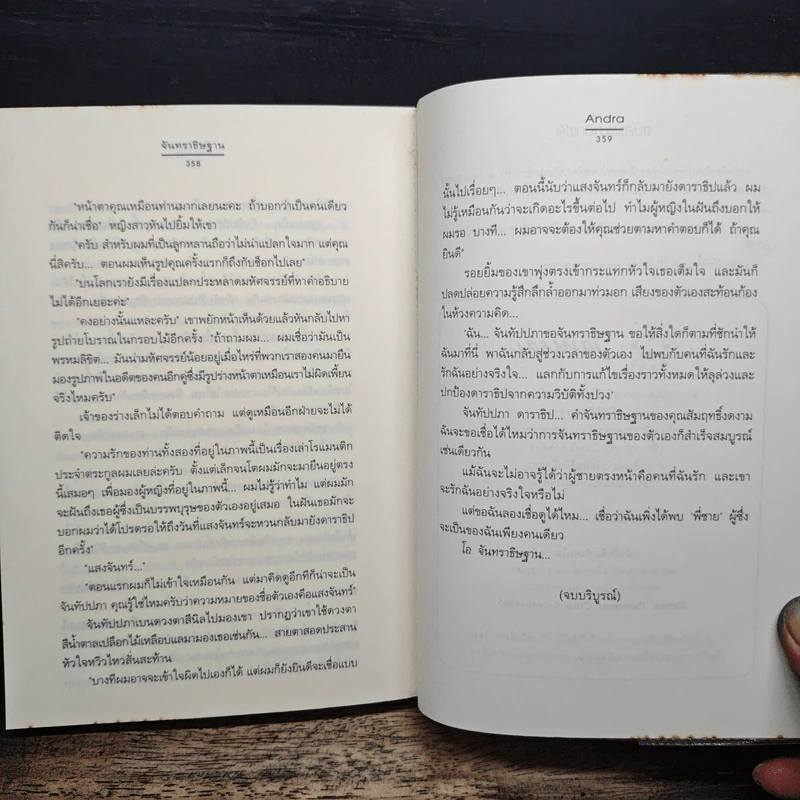 จันทราธิษฐาน
358
"หน้าตาคุณเหมือนท่านมากเลยนะคะ ถ้าบอกว่าเป็นคนเดียว
กันก็น่าเชื่อ" หญิงสาวหันไปยิ้มให้เขา
"ครับ สำหรับผมที่เป็นลูกหลานถือว่าไม่น่าแปลกใจมาก แต่คุณ
นี่สิครับ... ตอนผมเห็นรูปคุณครั้งแรกก็ถึงกับช็อกไปเลย"
"บนโลกเรายังมีเรื่องแปลกประหลาดมหัศจรรย์ที่หาคำอธิบาย
ไม่ได้อีกเยอะค่ะ"
"คงอย่างนั้นแหละครับ" เขาพยักหน้าเห็นด้วยแล้วหันกลับไปหา
รูปถ่ายโบราณในกรอบไม้อีกครั้ง "ถ้าถามผม... ผมเชื่อว่ามันเป็น
พรหมลิขิต... มันน่ามหัศจรรย์น้อยอยู่เมื่อไหร่ที่พวกเราสองคนมายืน
มองรูปภาพในอดีตของคนอีกคู่ซึ่งมีรูปร่างหน้าตาเหมือนเราไม่ผิดเพี้ยน
จริงไหมครับ"
เจ้าของร่างเล็กไม่ได้ตอบคำถาม แต่ดูเหมือนอีกฝ่ายจะไม่ได้
ติดใจ
"ความรักของท่านทั้งสองที่อยู่ในภาพนี้เป็นเรื่องเล่าโรแมนติก
ประจำตระกูลผมเลยล่ะครับ ตั้งแต่เล็กจนโตผมมักจะมายืนอยู่ตรง
นี้เสมอๆ เพื่อมองผู้หญิงที่อยู่ในภาพนี้... ผมไม่รู้ว่าทำไม แต่ผมมัก
จะฝันถึงเธอผู้ซึ่งเป็นบรรพบุรุษของตัวเองอยู่เสมอ ในฝันเธอมักจะ
บอกผมว่าได้โปรดรอให้ถึงวันที่แสงจันทร์จะหวนกลับมายังดาราธิป
อีกครั้ง"
"แสงจันทร์..."
"ตอนแรกผมก็ไม่เข้าใจเหมือนกัน แต่มาคิดดูอีกทีก็น่าจะเป็น
จันทัปปภา คุณรู้ใช่ไหมครับว่าความหมายของชื่อตัวเองคือแสงจันทร์"
จันทัปปภาเบนดวงตาสีนิลไปมองเขา ปรากฏว่าเขาใช้ดวงตา
สีน้ำตาลเปลือกไม้เหลือบแลมามองเธอเช่นกัน... สายตาสอดประสาน
หัวใจหวิวไหวสั่นสะท้าน
"บางทีผมอาจจะเข้าใจผิดไปเองก็ได้ แต่ผมก็ยังยินดีจะเชื่อแบบ
Andra
359
นั้นไปเรื่อยๆ... ตอนนี้นับว่าแสงจันทร์ก็กลับมายังดาราธิปแล้ว ผม
ไม่รู้เหมือนกันว่าจะเกิดอะไรขึ้นต่อไป ทำไมผู้หญิงในฝันถึงบอกให้
ผมรอ บางที... ผมอาจจะต้องให้คุณช่วยตามหาคำตอบก็ได้ ถ้าคุณ
ยินดี"
รอยยิ้มของเขาพุ่งตรงเข้ากระแทกหัวใจเธอเต็มใจ และมันก็
ปลดปล่อยความรู้สึกลึกล้ำออกมาท่วมอก เสียงของตัวเองสะท้อนก้อง
ในห้วงความคิด...
'ฉัน... จันทัปปภาขอจันทราธิษฐาน ขอให้สิ่งใดก็ตามที่ชักนำให้
ฉันมาที่นี่ พาฉันกลับสู่ช่วงเวลาของตัวเอง ไปพบกับคนที่ฉันรักและ
รักฉันอย่างจริงใจ... แลกกับการแก้ไขเรื่องราวทั้งหมดให้ลุล่วงและ
ปกป้องดาราธิปจากความวิบัติทั้งปวง'
จันทัปปภา ดาราธิป... คำจันทราธิษฐานของคุณสัมฤทธิ์งดงาม
ฉันจะขอเชื่อได้ไหมว่าการจันทราธิษฐานของตัวเองก็สำเร็จสมบูรณ์
เช่นเดียวกัน
แม้ฉันจะไม่อาจรู้ได้ว่าผู้ชายตรงหน้าคือคนที่ฉันรัก และเขา
จะรักฉันอย่างจริงใจหรือไม่
แต่ขอฉันลองเชื่อดูได้ไหม... เชื่อว่าฉันเพิ่งได้พบ 'พี่ชาย' ผู้ซึ่ง
จะเป็นของฉันเพียงคนเดียว
โอ จันทราธิษฐาน...
(จบบริบูรณ์)